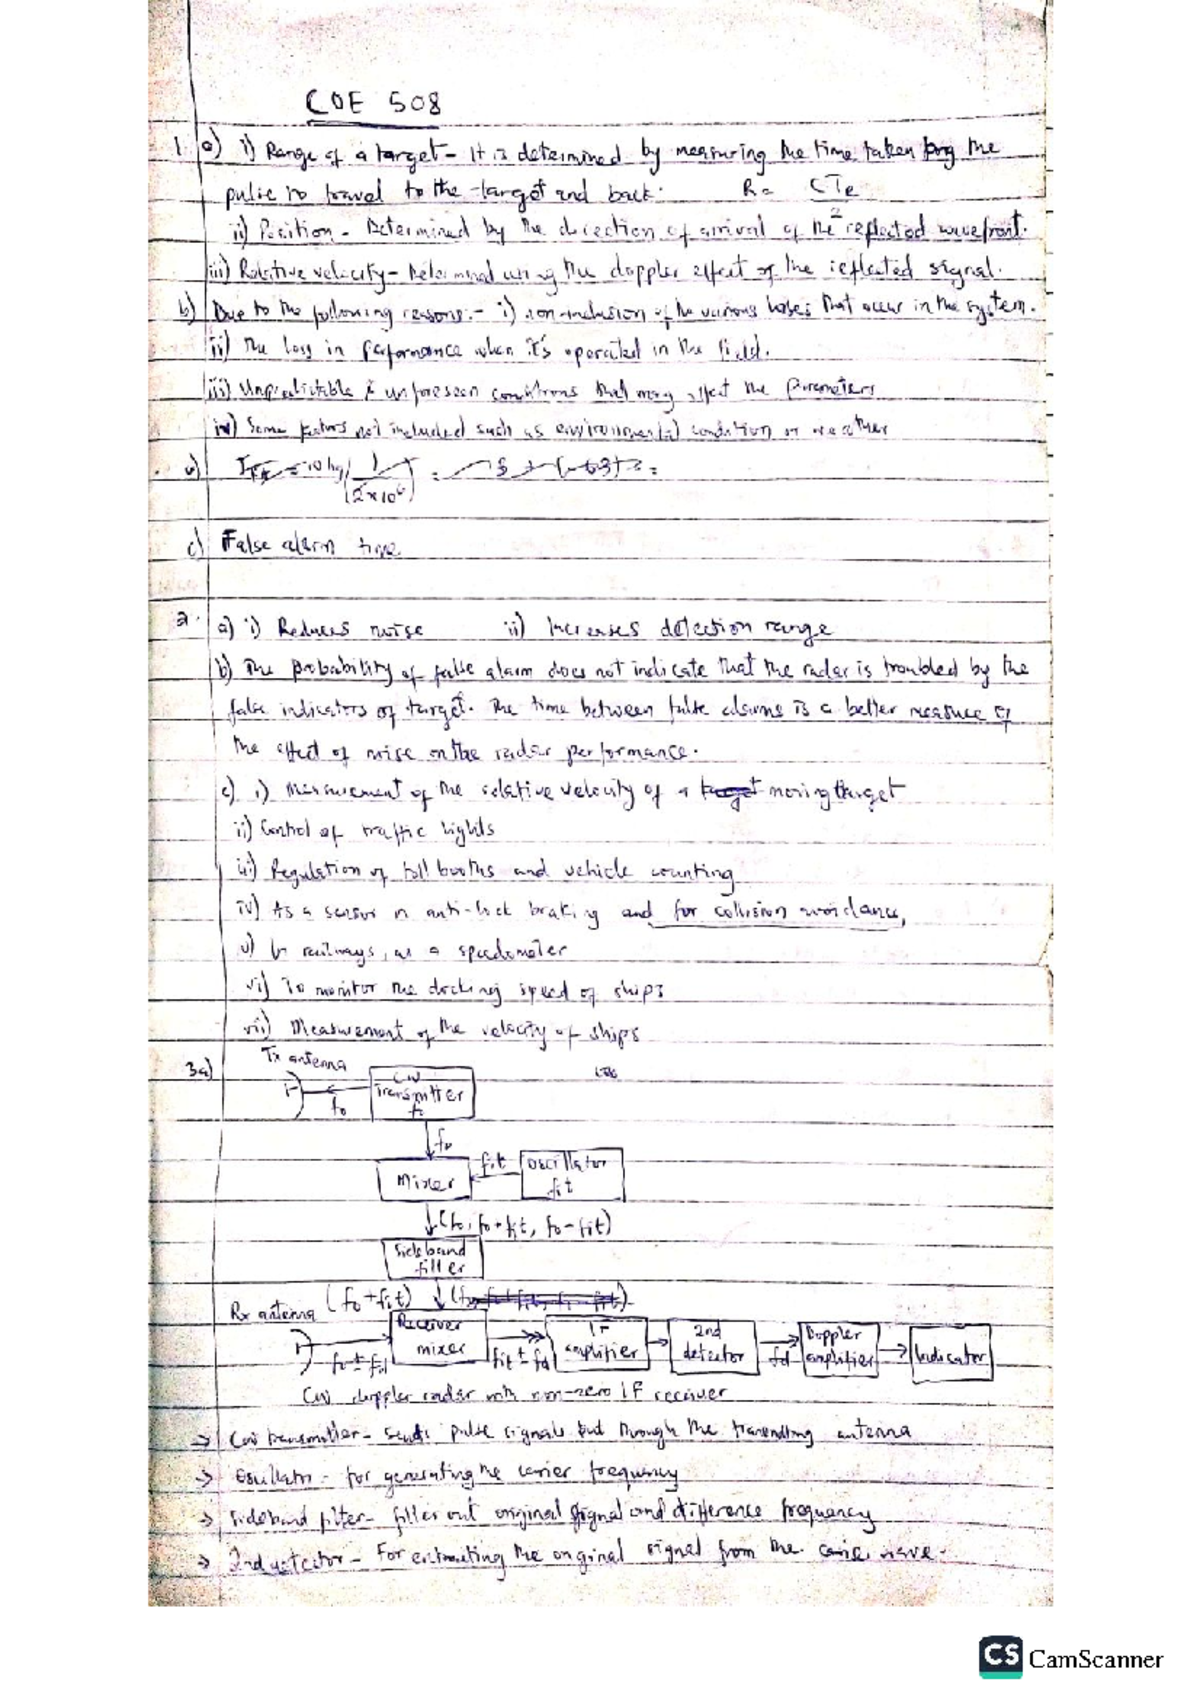 COE 508
1. a) i) Range of a target - It is determined by measuring the time taken by the
pulse to travel to the target and back. R = CTR / 2
ii) Position - Determined by the direction of arrival of the reflected wavefront.
iii) Relative velocity - Determined using the doppler effect of the reflected signal.
b) Due to the following reasons:- i) non-inclusion of the various losses that occur in the system.
ii) The loss in performance when it's operated in the field.
iii) Unpredictable & unforeseen conditions that may affect the parameters
iv) Some factors not included such as environmental condition or weather
c) False alarm time
2. a) i) Reduces noise ii) Increases detection range
b) The probability of false alarm does not indicate that the radar is troubled by the
false indicators of target. The time between false alarms is a better measure of
the effect of noise on the radar performance.
c) i) Measurement of the relative velocity of a target moving target
ii) Control of traffic lights
iii) Regulation of toll booths and vehicle counting
iv) As a sensor in anti-lock braking and for collision avoidance,
v) In railways, as a speedometer
vi) To monitor the docking speed of ships
vii) Measurement of the velocity of ships
3a) Tx antenna
CW Transmitter
fo
fo
Mixer fit Oscillator fit
(fo, fo+fit, fo-fit)
Sideband filter
Rx antenna (fo+fit)
fo±fd Receiver mixer fit±fd IF amplifier 2nd detector fd Doppler amplifier Indicator
CW doppler radar with non-zero IF receiver
→ CW transmitter - sends pulse signals out through the transmitting antenna
→ Oscillator - for generating the carrier frequency
→ Sideband filter - filters out original signal and difference frequency
→ 2nd detector - For extracting the original signal from the carrier wave.
CS CamScanner